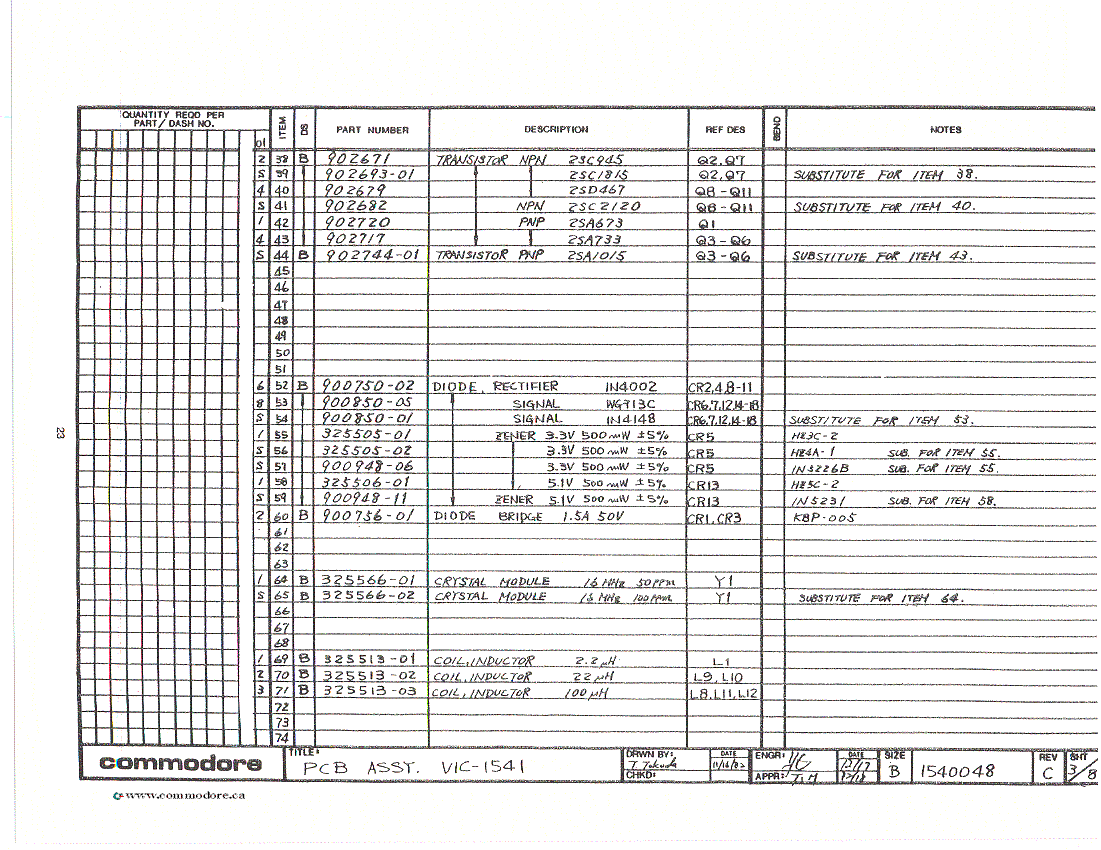 QUANTITY REQD PER
PART/ DASH NO.
01 ITEM DS PART NUMBER DESCRIPTION REF DES BEND NOTES
2 38 B 902671 TRANSISTOR NPN 2SC945 Q2,Q7
S 39 902693-01 2SC1815 Q2,Q7 SUBSTITUTE FOR ITEM 38.
4 40 902679 2SD467 Q8-Q11
S 41 902682 NPN 2SC2120 Q8-Q11 SUBSTITUTE FOR ITEM 40.
1 42 902720 PNP 2SA673 Q1
4 43 902717 2SA733 Q3-Q6
S 44 B 902744-01 TRANSISTOR PNP 2SA1015 Q3-Q6 SUBSTITUTE FOR ITEM 43.
45
46
47
48
49
50
51
6 52 B 900750-02 DIODE, RECTIFIER IN4002 CR2,4,8-11
8 53 900850-05 SIGNAL WG713C CR6,7,12,14-18
S 54 900850-01 SIGNAL IN4148 CR6,7,12,14-18 SUBSTITUTE FOR ITEM 53.
1 55 325505-01 ZENER 3.3V 500mW ±5% CR5 HZ3C-2
S 56 325505-02 3.3V 500mW ±5% CR5 HZ4A-1 SUB. FOR ITEM 55.
S 57 900948-06 3.3V 500mW ±5% CR5 IN5226B SUB. FOR ITEM 55.
1 58 325506-01 5.1V 500mW ±5% CR13 HZ5C-2
S 59 900948-11 ZENER 5.1V 500mW ±5% CR13 IN5231 SUB. FOR ITEM 58.
2 60 B 900756-01 DIODE BRIDGE 1.5A 50V CR1,CR3 KBP-005
61
62
63
1 64 B 325566-01 CRYSTAL MODULE 16 MHz 50PPM Y1
S 65 B 325566-02 CRYSTAL MODULE 16 MHz 100PPM Y1 SUBSTITUTE FOR ITEM 64.
66
67
68
1 69 B 325513-01 COIL,INDUCTOR 2.2µH L1
2 70 B 325513-02 COIL,INDUCTOR 22µH L9,L10
3 71 B 325513-03 COIL,INDUCTOR 100µH L8,L11,L12
72
73
74
23
commodore
TITLE: PCB ASSY. VIC-1541
DRWN BY: DATE
CHKD:
ENGR: DATE
APPR:
SIZE B
1540048
REV C
SHT 3/8
www.commodore.ca